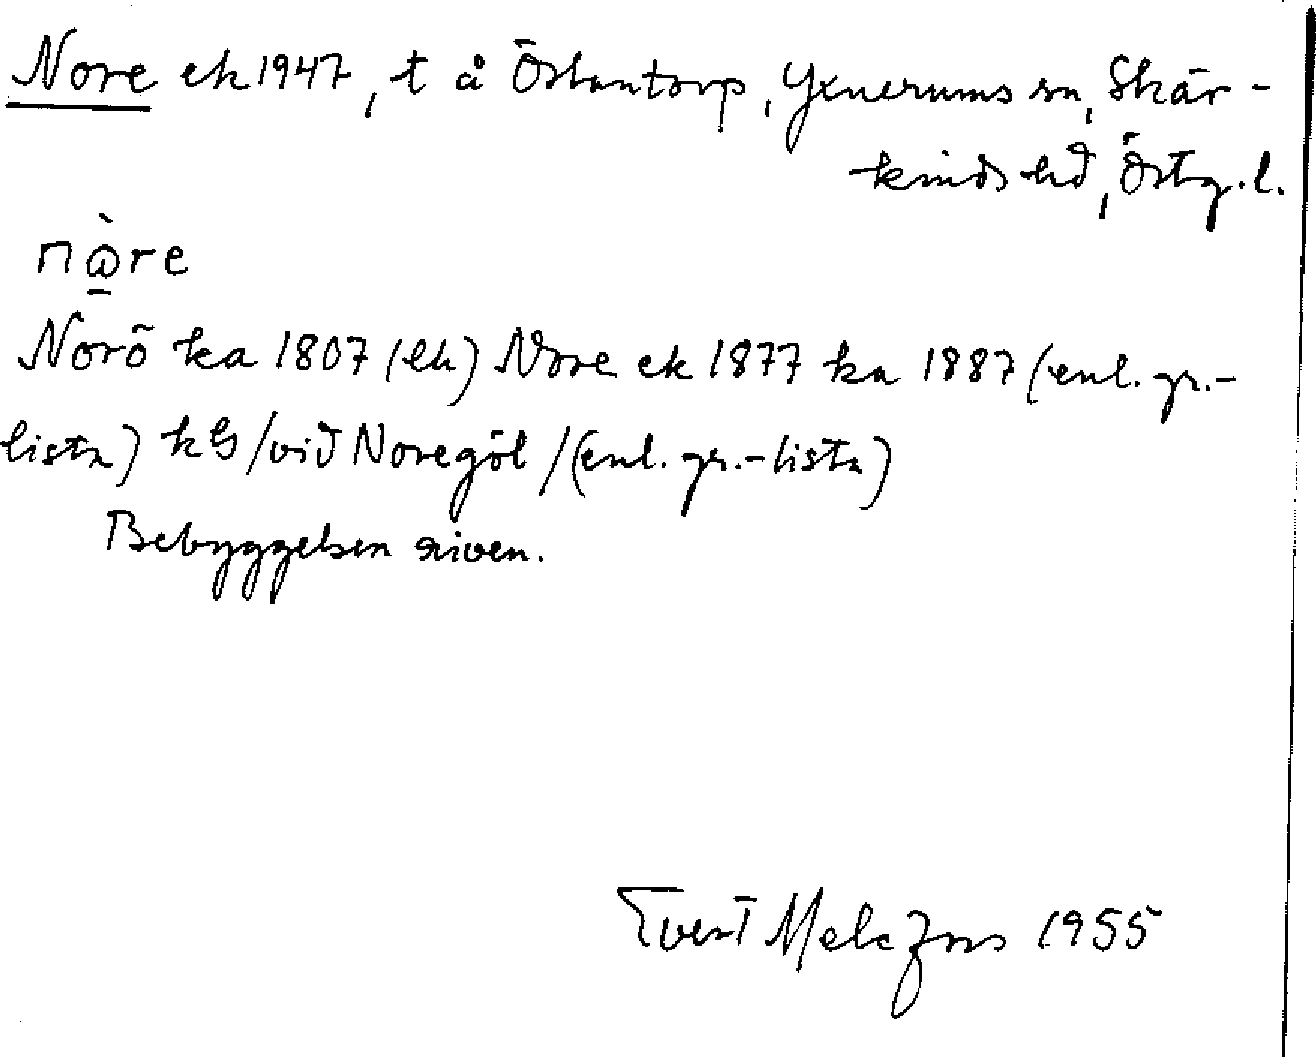 Nore ek 1947, t å Östantorp, Yxnerums sn, Skär-
kinds hd, Östg.l.
nὼ̲re
Norö ka 1807 (ek) Nore ek 1877 ka 1887 (enl. gr.-
lista) kB /vid Noregöl/ (enl. gr.-lista)
Bebyggelsen riven.
Evert Melefors 1955